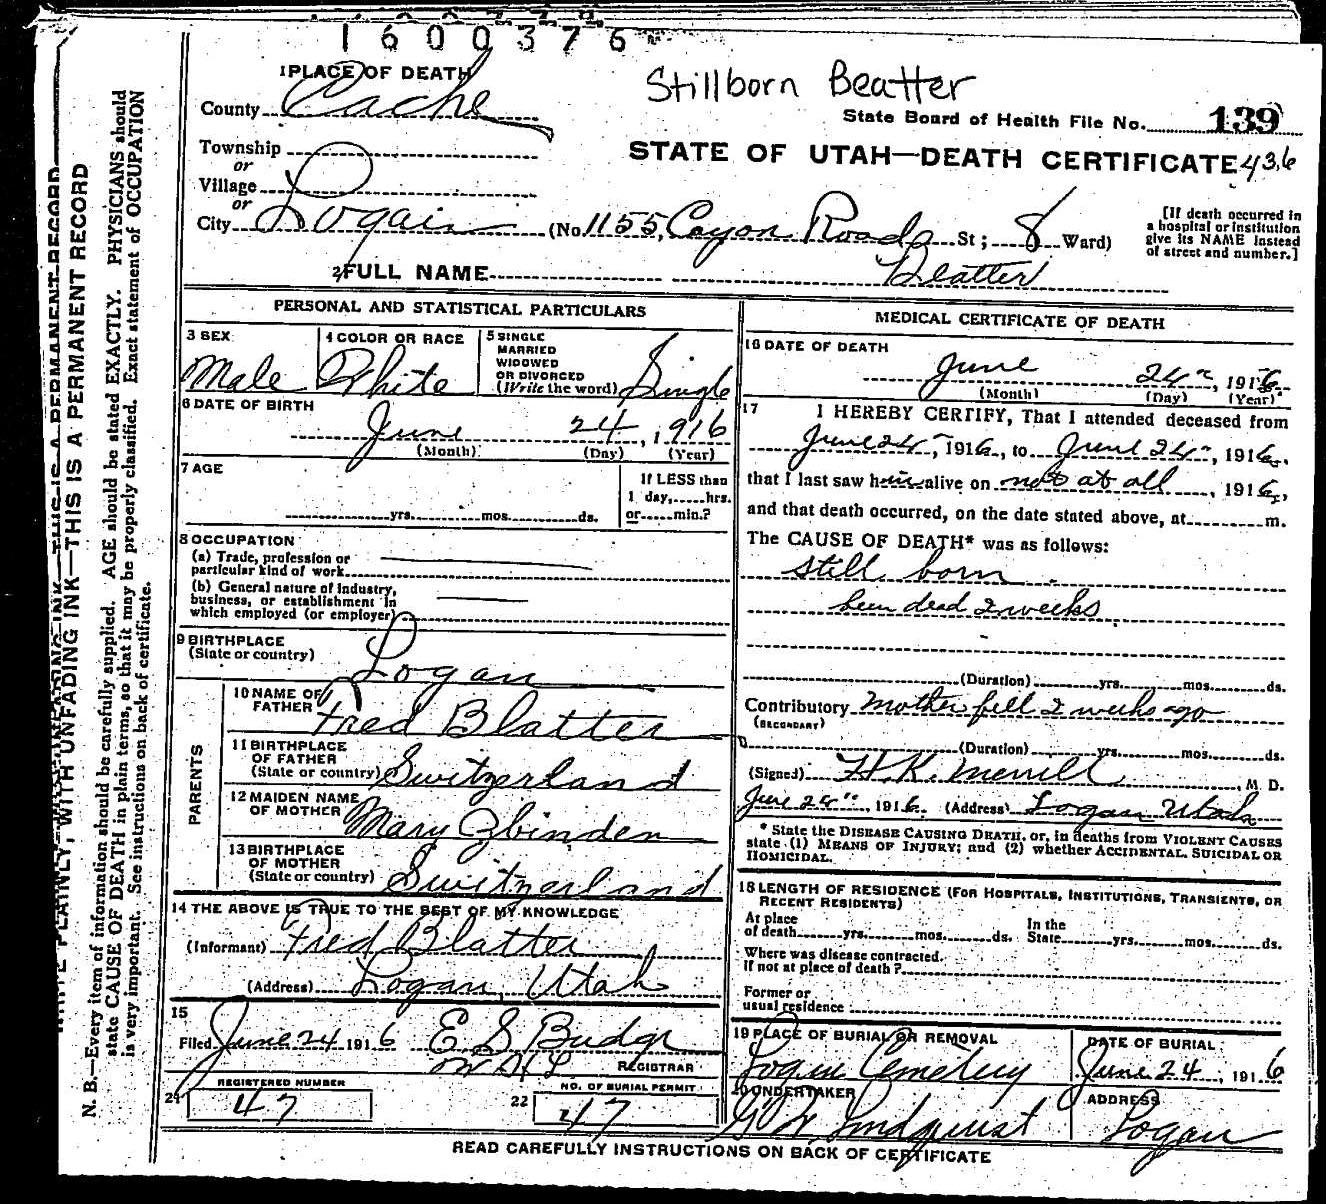 1600376
Stillborn Beatter
1 PLACE OF DEATH
County Cache
State Board of Health File No. 139
Township
or
Village
or
City Logain
STATE OF UTAH—DEATH CERTIFICATE 436
(No. 1155, Cayon Roads St; 8 Ward)
[If death occurred in
a hospital or institution
give its NAME instead
of street and number.]
2 FULL NAME Beatter
PERSONAL AND STATISTICAL PARTICULARS
3 SEX
Male
4 COLOR OR RACE
White
5 SINGLE
MARRIED
WIDOWED
OR DIVORCED
(Write the word) Single
6 DATE OF BIRTH
June 24, 1916
(Month) (Day) (Year)
7 AGE
yrs. mos. ds.
If LESS than
1 day,......hrs.
or......min.?
8 OCCUPATION
(a) Trade, profession or
particular kind of work
(b) General nature of industry,
business, or establishment in
which employed (or employer)
9 BIRTHPLACE
(State or country) Logan
PARENTS
10 NAME OF
FATHER Fred Blatter
11 BIRTHPLACE
OF FATHER
(State or country) Switzerland
12 MAIDEN NAME
OF MOTHER Mary Zbinden
13 BIRTHPLACE
OF MOTHER
(State or country) Switzerland
14 THE ABOVE IS TRUE TO THE BEST OF MY KNOWLEDGE
(Informant) Fred Blatter
(Address) Logan, Utah
15
Filed June 24 1916 E S Budge
REGISTRAR
REGISTERED NUMBER
21 47
NO. OF BURIAL PERMIT
22 47
MEDICAL CERTIFICATE OF DEATH
16 DATE OF DEATH
June 24, 1916
(Month) (Day) (Year)
17 I HEREBY CERTIFY, That I attended deceased from
June 24, 1916, to June 24, 1916,
that I last saw him alive on not at all, 1916,
and that death occurred, on the date stated above, at m.
The CAUSE OF DEATH* was as follows:
still born
been dead 2 weeks
(Duration) yrs. mos. ds.
Contributory Mother fell 2 weeks ago
(SECONDARY)
(Duration) yrs. mos. ds.
(Signed) H. K. Merrill, M. D.
June 24, 1916 (Address) Logan Utah
* State the DISEASE CAUSING DEATH, or, in deaths from VIOLENT CAUSES
state (1) MEANS OF INJURY; and (2) whether ACCIDENTAL, SUICIDAL OR
HOMICIDAL.
18 LENGTH OF RESIDENCE (FOR HOSPITALS, INSTITUTIONS, TRANSIENTS, OR
RECENT RESIDENTS)
At place
of death yrs. mos. ds.
In the
State yrs. mos. ds.
Where was disease contracted,
If not at place of death?
Former or
usual residence
19 PLACE OF BURIAL OR REMOVAL
Logan Cemetery
DATE OF BURIAL
June 24, 1916
20 UNDERTAKER
G W Lindquist
ADDRESS
Logan
READ CAREFULLY INSTRUCTIONS ON BACK OF CERTIFICATE
WRITE PLAINLY, WITH UNFADING INK—THIS IS A PERMANENT RECORD
N. B.—Every item of information should be carefully supplied. AGE should be stated EXACTLY. PHYSICIANS should
state CAUSE OF DEATH in plain terms, so that it may be properly classified. Exact statement of OCCUPATION
is very important. See instructions on back of certificate.